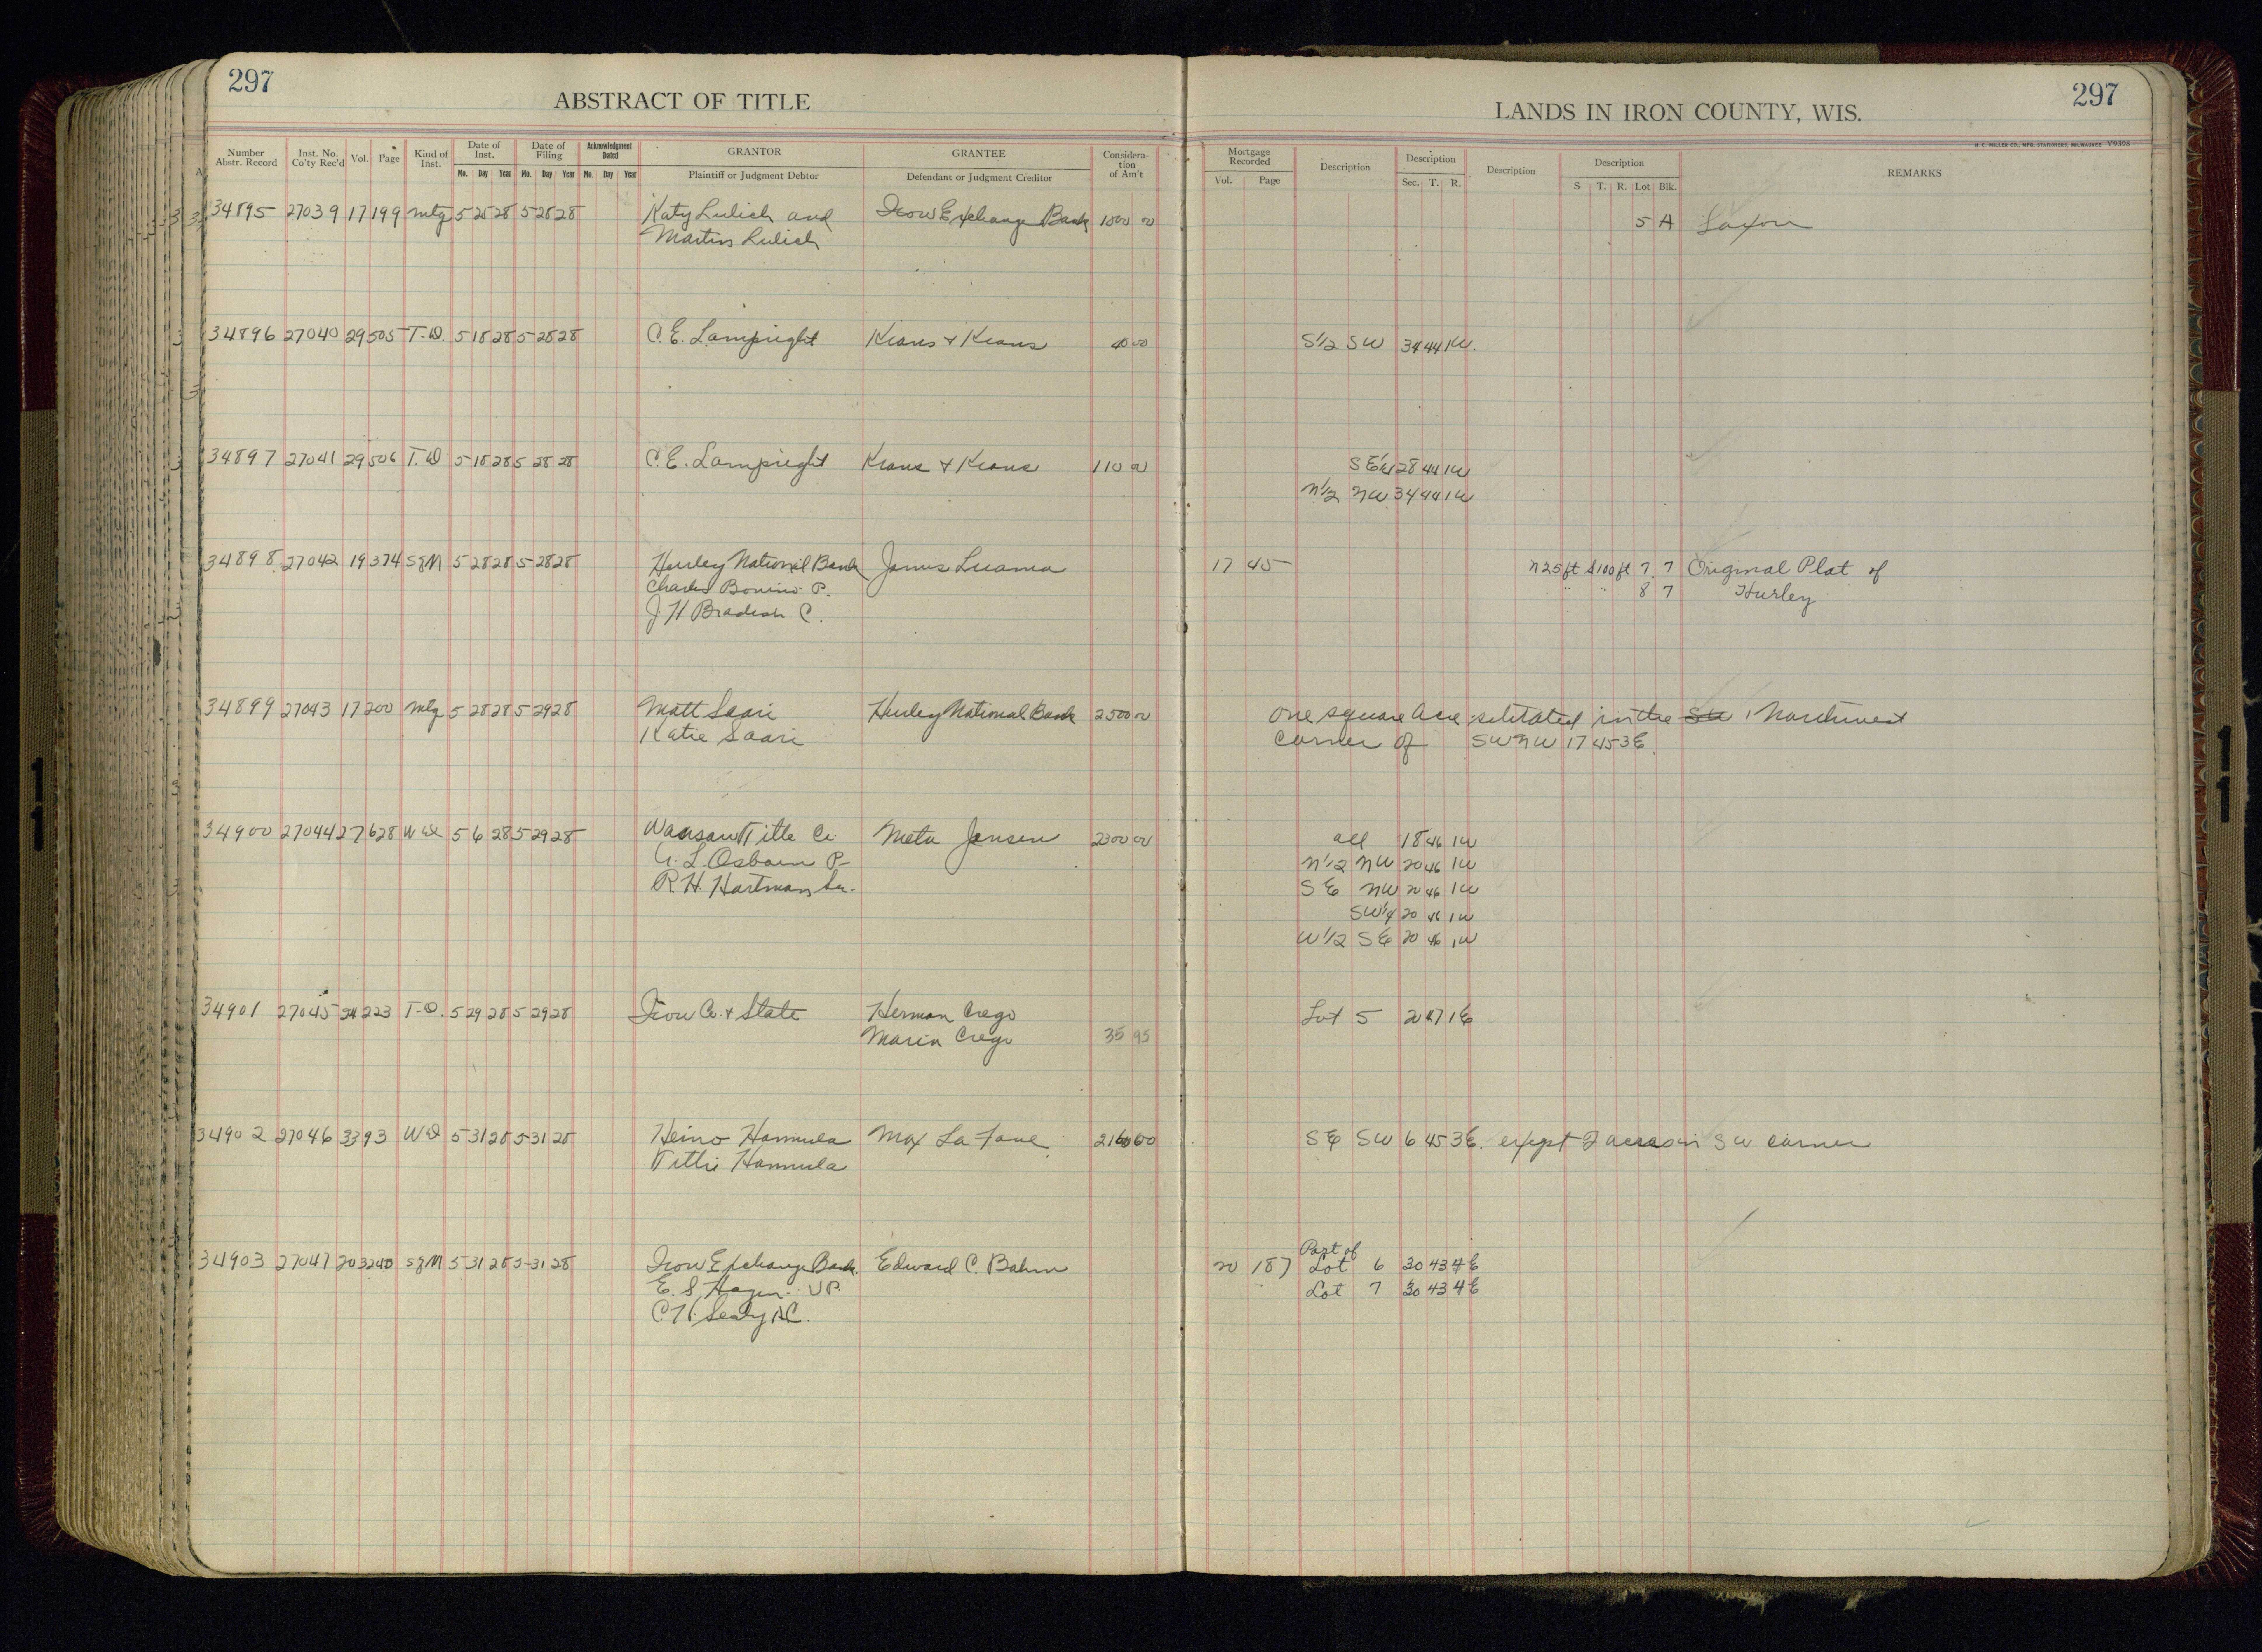 297
ABSTRACT OF TITLE
LANDS IN IRON COUNTY, WIS.
297
H. C. MILLER CO., MFG. STATIONERS, MILWAUKEE V9398
Number Abstr. Record | Inst. No. Co'ty Rec'd | Vol. | Page | Kind of Inst. | Date of Inst. Mo. Day Year | Date of Filing Mo. Day Year | Acknowledgment Dated Mo. Day Year | GRANTOR Plaintiff or Judgment Debtor | GRANTEE Defendant or Judgment Creditor | Consideration of Am't | Mortgage Recorded Vol. Page | Description | Description Sec. T. R. | Description | Description S T. R. Lot Blk. | REMARKS
34895 27039 17 199 Mtg 5 28 28 5 28 28 Katy Lulich and Iron Exchange Bank 1500 00 5 A Saxon
Martin Lulich
34896 27040 29 505 T.D. 5 18 28 5 28 28 C. E. Lampright Kraus & Kraus 40 00 S1/2 SW 34 44 1W.
34897 27041 29 506 T.D 5 18 28 5 28 28 C. E. Lampright Kraus & Kraus 110 00 SE1/4 28 44 1W
N1/2 NW 34 44 1W
34898 27042 19 374 SgM 5 28 28 5 28 28 Hurley National Bank James Luama 17 45 N25ft S100ft 7 7 Original Plat of
Charles Bonino P. " " 8 7 Hurley
J H Bradish C.
34899 27043 17 200 Mtg 5 28 28 5 29 28 Matt Saari Hurley National Bank 2500 00 One square Acre situated in the SW Northwest
Katie Saari corner of SWNW 17 45 3E
34900 27044 27 628 WD 5 6 28 5 29 28 Wausau Title Co. Meta Jensen 2300 00 all 18 46 1W
A. L. Osborn P- N1/2 NW 20 46 1W
R H. Hartman Sec. SE NW 20 46 1W
SW1/4 20 46 1W
W1/2 SE 20 46 1W
34901 27045 24 223 T-D. 5 29 28 5 29 28 Iron Co. & State Herman Crego Lot 5 2 47 1E
Maria Crego 35 95
34902 27046 33 93 WD 5 31 28 5 31 28 Heino Hannula Max La Fave 2160 00 SE SW 6 45 3E. except 2 acres in SW corner
Tillie Hannula
34903 27047 20 324 SgM 5 31 28 5-31 28 Iron Exchange Bank Edward C. Bahm 20 187 Part of Lot 6 30 43 4E
E. S. Hagen VP. Lot 7 30 43 4E
C. H. Sealy AC.